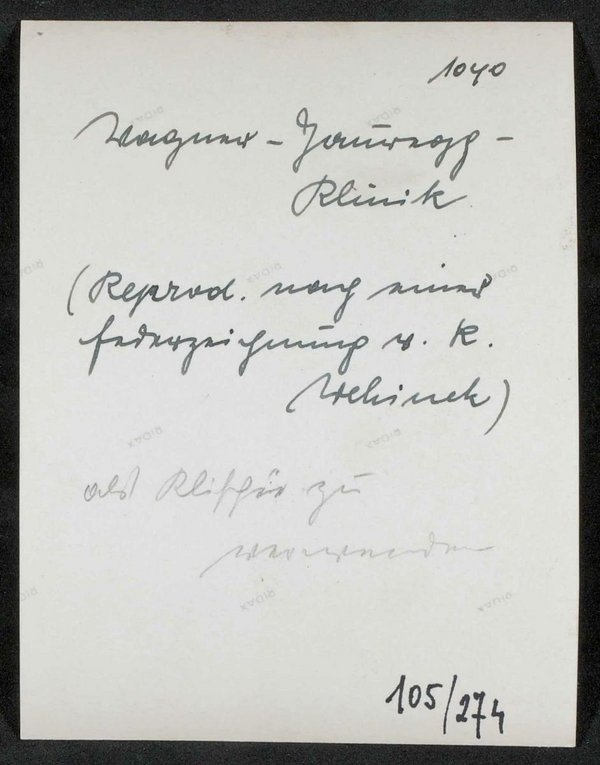 1040
Wagner-Jauregg-
Klinik
(Reprod. nach einer
Federzeichnung v. K.
)
als Klischée zu
verwenden
105/274
RIDAX